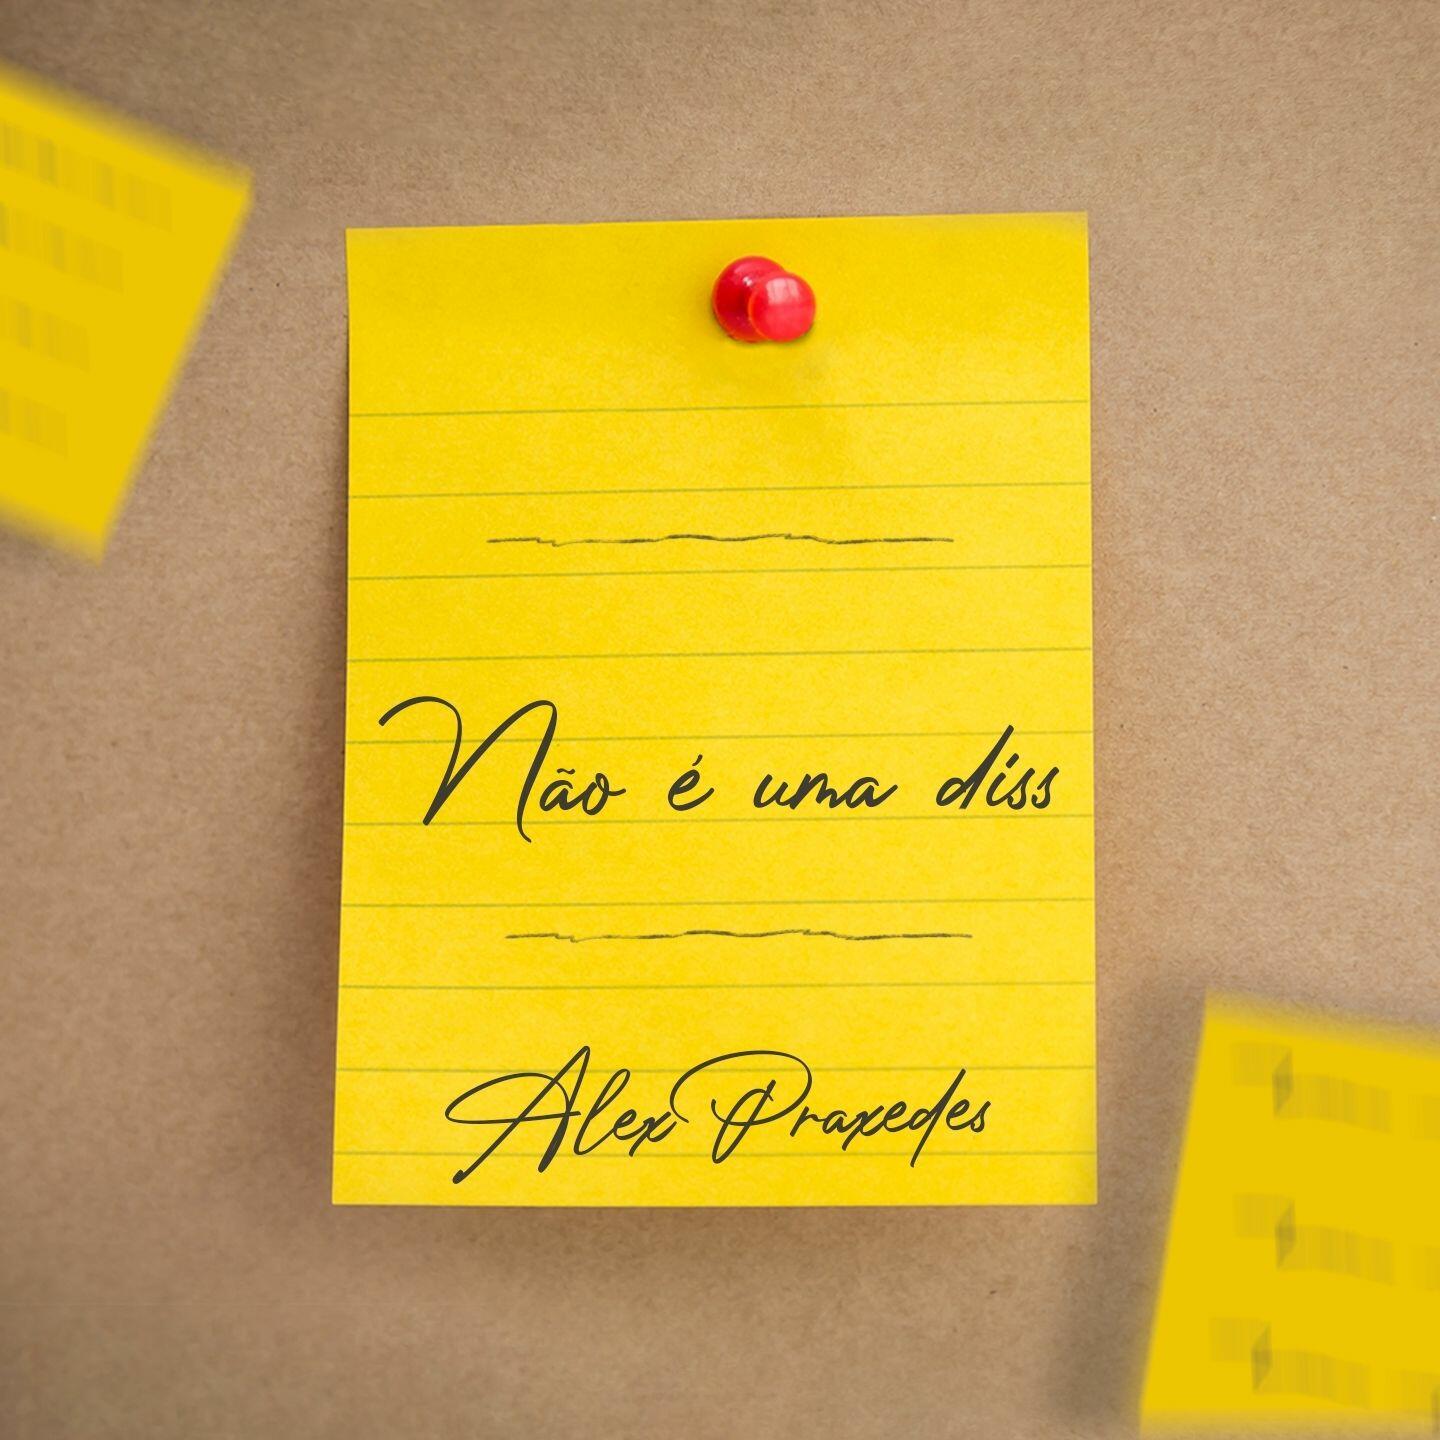 Não é uma diss
Alex Praxedes